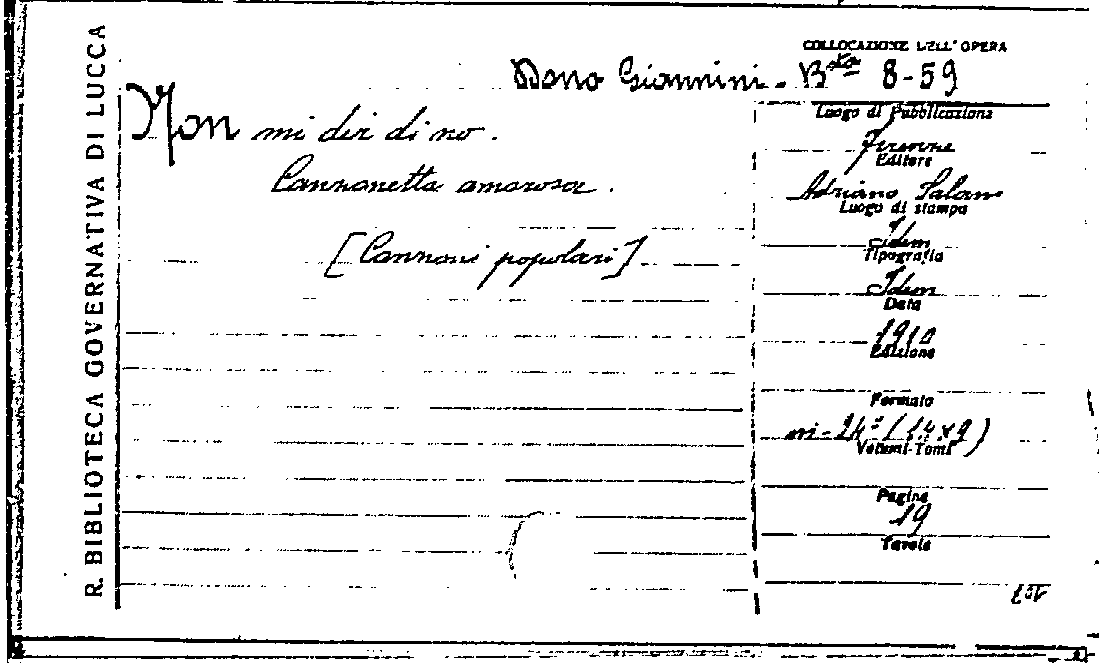 R. BIBLIOTECA GOVERNATIVA DI LUCCA
COLLOCAZIONE DELL'OPERA
Dono Giannini - B.ta 8-59
Non mi dir di no.
Canzonetta amorosa.
[Canzoni popolari]
Luogo di Pubblicazione
Firenze
Editore
Adriano Salani
Luogo di stampa
Idem
Tipografia
Idem
Data
1910
Edizione
Formato
in-24° (14x9)
Volumi-Tomi
Pagine
19
Tavole